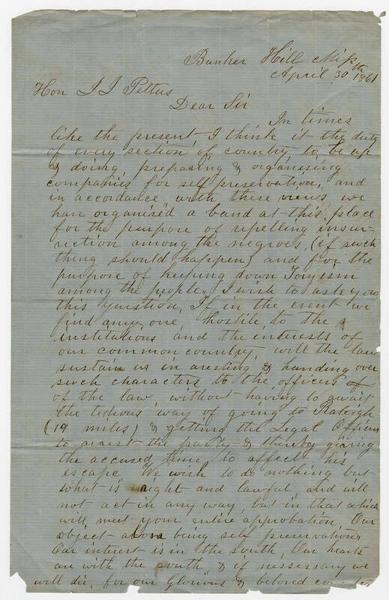 Bunker Hill Miss
April 30th 1861
Hon J J Pettus
Dear Sir
In times
like the present, I think it the duty
of every section of country to be up
& doing, preparing & organising
companies for self preservation, and
in accordance with these views we
have organised a band at this place
for the purpose of repelling insur-
rection among the negroes, (if such
thing should happen) and for the
purpose of keeping down Toryism
among the people. I wish to ask you
this question, If in the event we
find any one, hostile to the
institutions and the interests of
our common country, will the law
sustain us in aresting & handing over
such characters to the officers of
of the law, without having to await
the tedious way of going to Raleigh
(14 miles) & getting the Legal Officer
to arrest the party & thereby giving
the accused time to affect his
escape. We wish to do nothing but
what is right and lawful and will
not act in any way, but in that which
will meet your entire approbation, Our
object alone being self preservation
Our interest is in the south, Our hearts
are with the south, & if nessessary we
will die, for our glorious & beloved